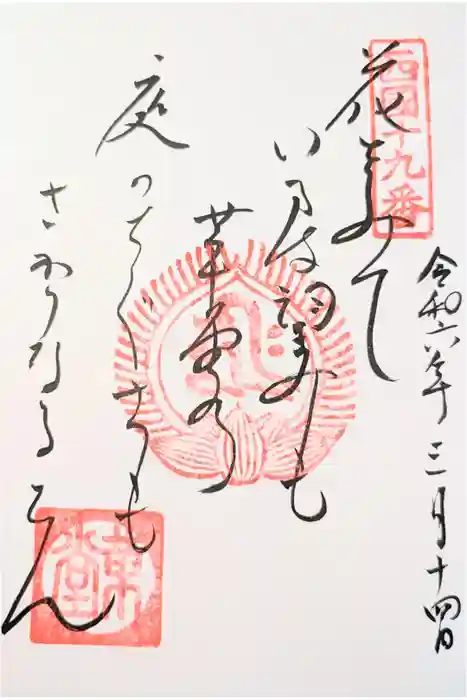 西国十九番
令和六年三月十四日
花をみて
いまは望みも
革堂の
庭のちくさも
さかりなるらん
革堂